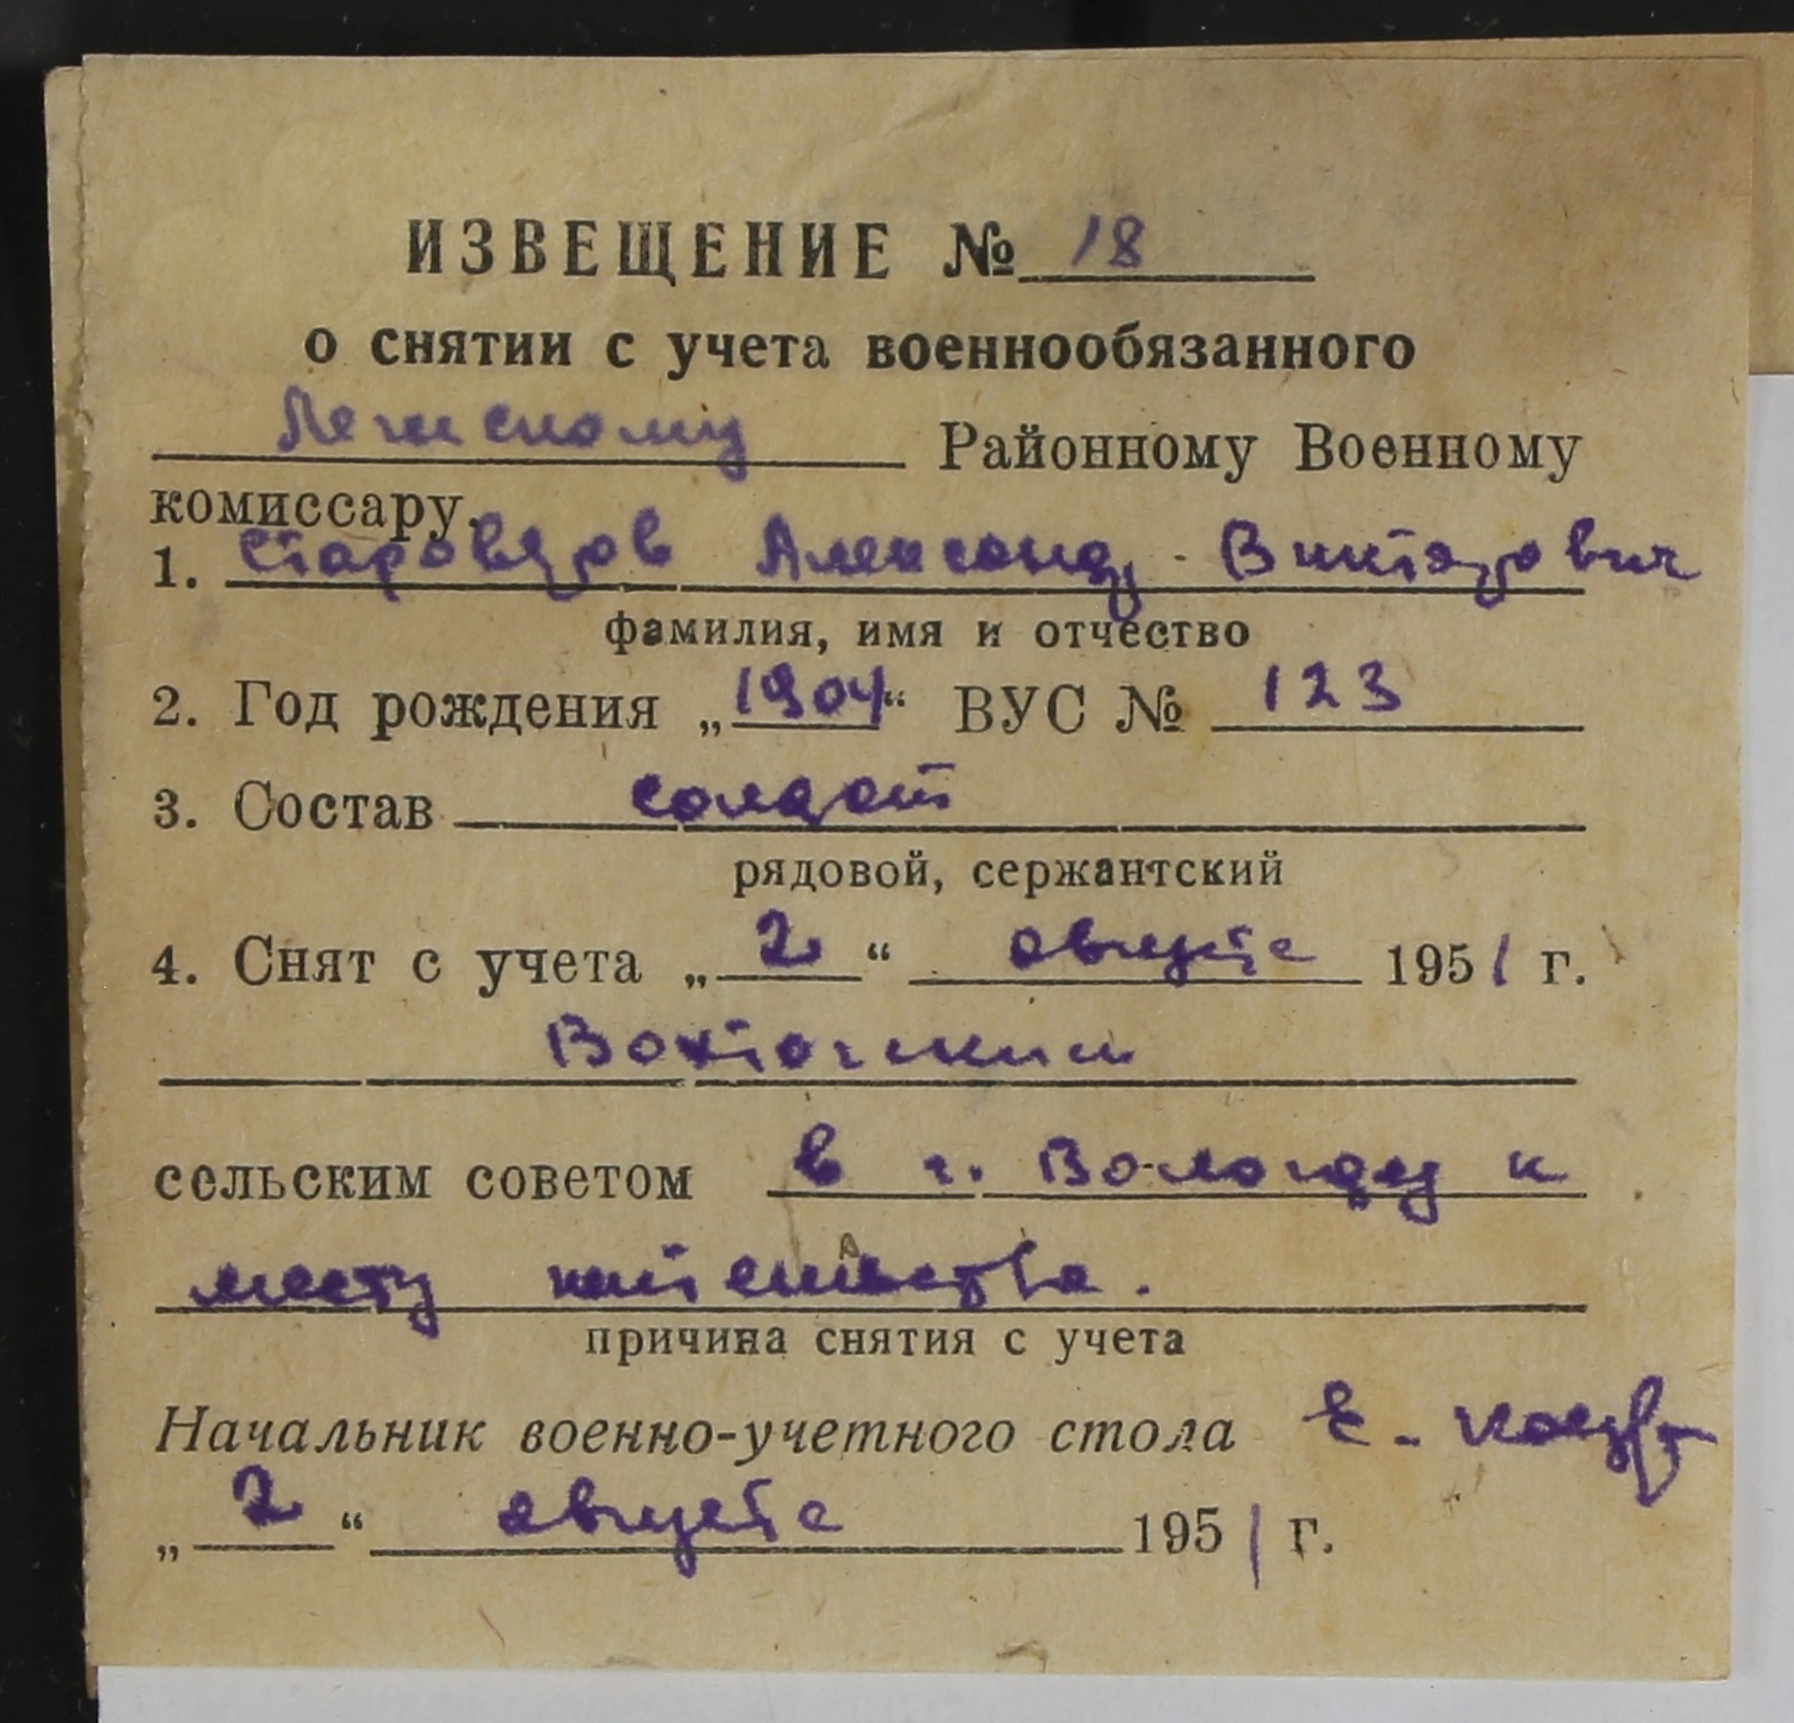 ИЗВЕЩЕНИЕ № 18
о снятии с учета военнообязанного
Лежскому Районному Военному
комиссару.
1. Староверов Александр Викторович
фамилия, имя и отчество
2. Год рождения „1904“ ВУС № 123
3. Состав солдат
рядовой, сержантский
4. Снят с учета „2“ августа 1951 г.
Вохтогским
сельским советом в г. Вологду к
месту жительства.
причина снятия с учета
Начальник военно-учетного стола Е.
„2“ августа 1951 г.